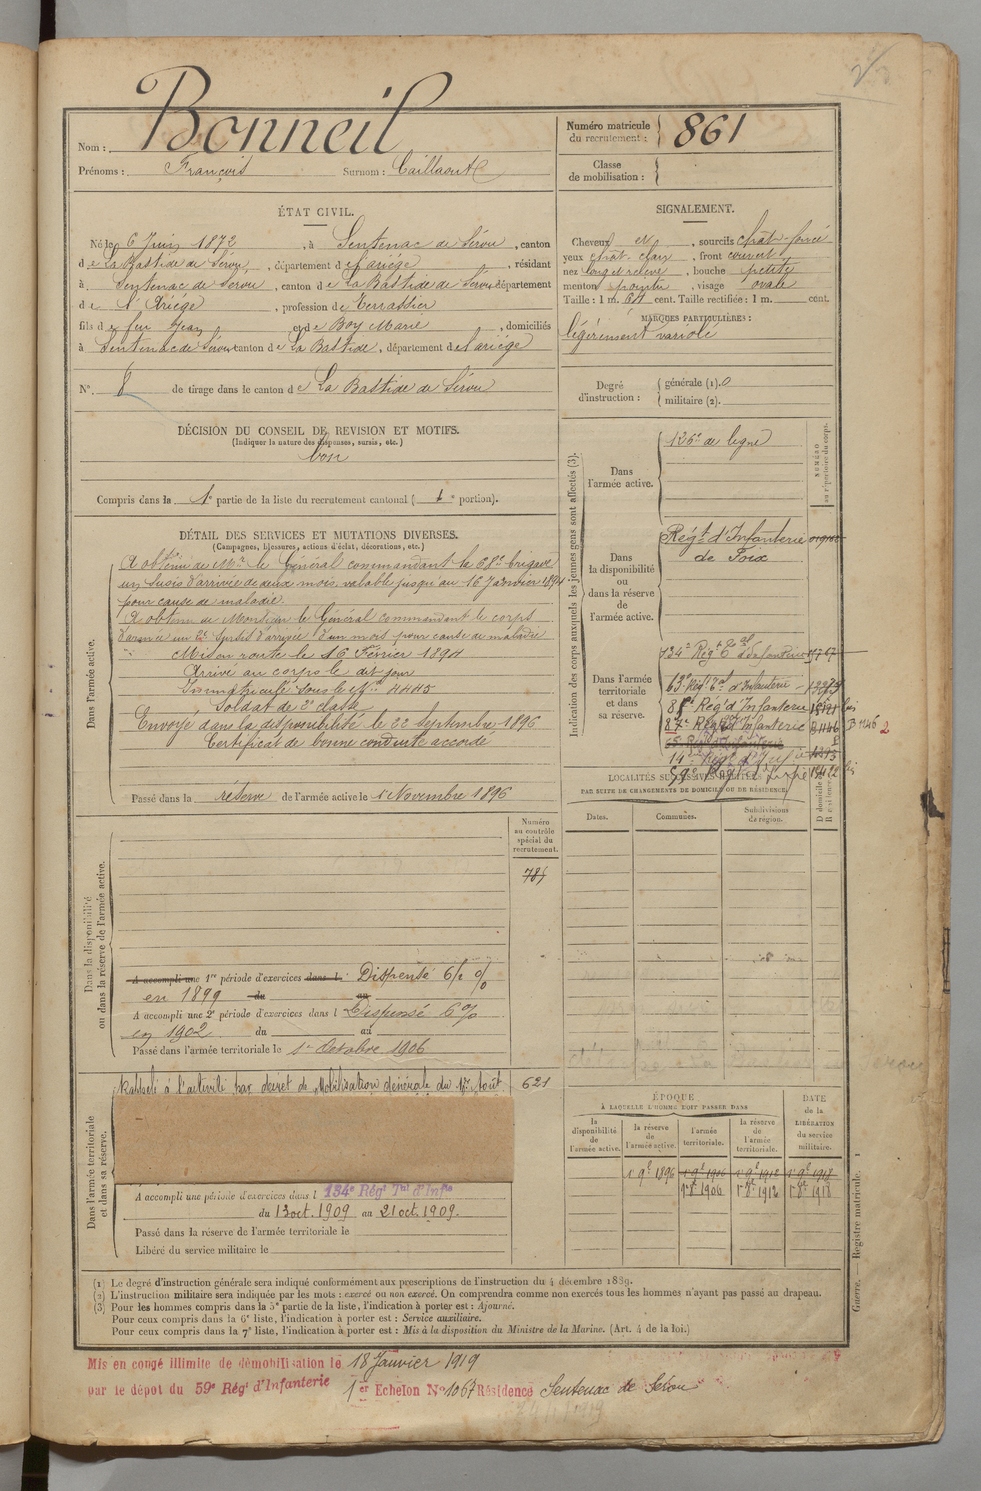 Nom : Bonneil
Prénoms : François Surnom : Caillaout
Numéro matricule du recrutement : 861
Classe de mobilisation :
ÉTAT CIVIL.
Né le 6 Juin 1872, à Sentenac de Sérou, canton
de La Bastide de Sérou, département de l'ariége, résidant
à Sentenac de Serou, canton de La Bastide de Serou département
de l'Ariége, profession de Terrassier
fils de feu Jean et de Boy Marie, domiciliés
à Sentenac de Sérou canton de La Bastide, département de l'ariége
N°. 8 de tirage dans le canton de La Bastide de Sérou
SIGNALEMENT.
Cheveux et, sourcils chât-foncé
yeux chât. clair, front couvert
nez long et relevé, bouche petite
menton pointu, visage ovale
Taille : 1 m. 64 cent. Taille rectifiée : 1 m. cent.
MARQUES PARTICULIÈRES :
légèrement variolé
Degré d'instruction : générale (1). 0
militaire (2).
DÉCISION DU CONSEIL DE REVISION ET MOTIFS.
(Indiquer la nature des dispenses, sursis, etc.)
bon
Compris dans la 1e partie de la liste du recrutement cantonal ( 1e portion).
DÉTAIL DES SERVICES ET MUTATIONS DIVERSES.
(Campagnes, blessures, actions d'éclat, décorations, etc.)
Dans l'armée active.
A obtenu de Mr le Général commandant la 68e brigade
un sursis d'arrivée de deux mois valable jusqu'au 16 Janvier 1894
pour cause de maladie.
A obtenu de Monsieur le Général commandant le corps
d'armée un 2e sursis d'arrivée d'un mois pour cause de maladie
Mis en route le 16 Février 1894
Arrivé au corps le dit jour
Immatriculé sous le No 4440
Soldat de 2e classe
Envoyé dans la disponibilité le 22 Septembre 1896
Certificat de bonne conduite accordé
Passé dans la réserve de l'armée active le 1 Novembre 1896
Indication des corps auxquels les jeunes gens sont affectés (3).
NUMÉRO au répertoire du corps.
Dans l'armée active.
126e de ligne
Dans la disponibilité ou dans la réserve de l'armée active.
Régt d'Infanterie
de Foix
Dans l'armée territoriale et dans sa réserve.
134e Régt Tal d'Infanterie
63 Régt Tal d'Infanterie
Régt d'Infanterie
Régt d'Infanterie B 1146 B 1146 2
LOCALITÉS SUCCESSIVES HABITÉES
PAR SUITE DE CHANGEMENTS DE DOMICILE OU DE RÉSIDENCE.
Dates. Communes. Subdivisions de région. D domicile R résidence
Numéro au contrôle spécial du recrutement.
785
Dans la disponibilité ou dans la réserve de l'armée active.
A accompli une 1re période d'exercices dans l. Dispensé 6/2 %
en 1899 du au
A accompli une 2e période d'exercices dans l Dispensé 6%
en 1902 du au
Passé dans l'armée territoriale le 1er Octobre 1906
Dans l'armée territoriale et dans sa réserve.
Rappelé à l'activité par décret de Mobilisation générale du 1er Août 621
A accompli une période d'exercices dans l 134e Régt Tal d'Infie
du 13 oct. 1909 au 21 oct. 1909.
Passé dans la réserve de l'armée territoriale le
Libéré du service militaire le
ÉPOQUE
À LAQUELLE L'HOMME DOIT PASSER DANS
DATE de la LIBÉRATION du service militaire.
la disponibilité de l'armée active. la réserve de l'armée active. l'armée territoriale. la réserve de l'armée territoriale.
1 9e 1896 1 9e 1906 1 9e 1912 1 9e 1918
1er 8e 1906 1er 8e 1912 1er 8e 1918
(1) Le degré d'instruction générale sera indiqué conformément aux prescriptions de l'instruction du 4 décembre 1889.
(2) L'instruction militaire sera indiquée par les mots : exercé ou non exercé. On comprendra comme non exercés tous les hommes n'ayant pas passé au drapeau.
(3) Pour les hommes compris dans la 5e partie de la liste, l'indication à porter est : Ajourné.
Pour ceux compris dans la 6e liste, l'indication à porter est : Service auxiliaire.
Pour ceux compris dans la 7e liste, l'indication à porter est : Mis à la disposition du Ministre de la Marine. (Art. 4 de la loi.)
Guerre. — Registre matricule. 1
Mis en congé illimité de démobilisation le 18 Janvier 1919
par le dépôt du 59e Régt d'Infanterie 1er Echelon No 1067 Résidence Sentenac de Sérou